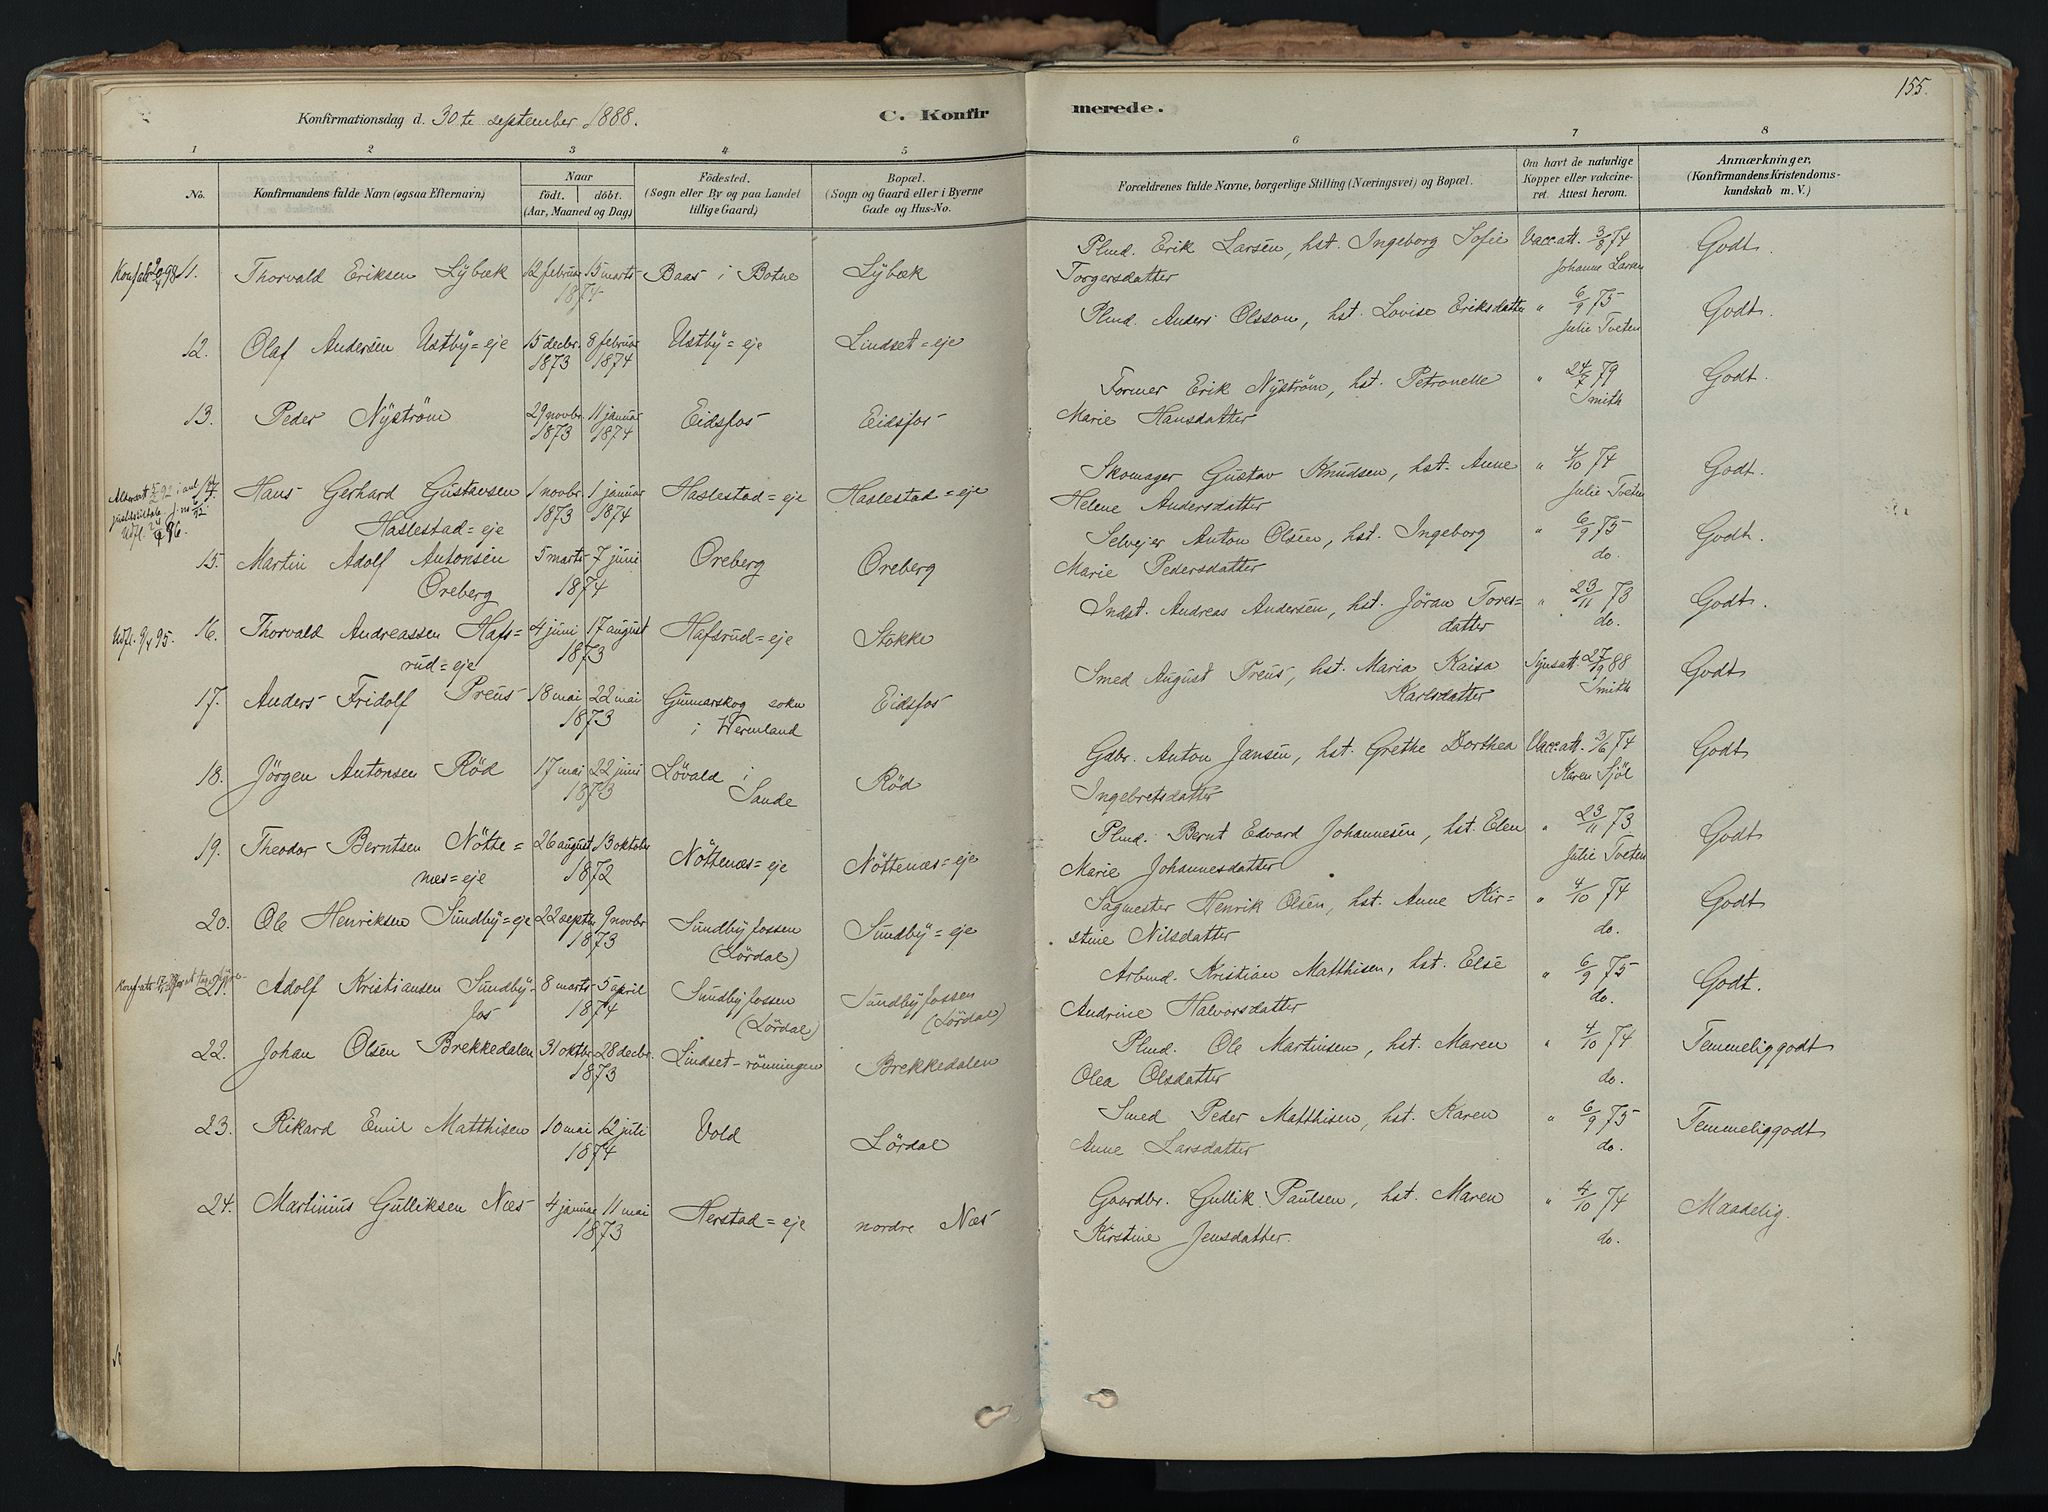 155.
Konfirmationsdag d. 30te september 1888.
C. Konfirmerede.
1 2 3 4 5 6 7 8
No.
Konfirmandens fulde Navn (ogsaa Efternavn)
Naar
født. døbt.
(Aar, Maaned og Dag)
Fødested.
(Sogn eller By og paa Landet
tillige Gaard)
Bopæl.
(Sogn og Gaard eller i Byerne
Gade og Hus-No.
Forældrenes fulde Navne, borgerlige Stilling (Næringsvei) og Bopæl.
Om havt de naturlige
Kopper eller vakcine-
ret. Attest herom.
Anmærkninger,
(Konfirmandens Kristendoms-
kundskab m. V.)
11. Thorvald Eriksen Lÿbæk 12 februar 15 marts Baas i Botne Lÿbæk
1874
Plmd. Erik Larsen, hst. Ingeborg Sofie Vacc.att. 3/8 74 Godt.
Torgersdatter Johanne Larsen
12. Olaf Andersen Ustbÿ=eje 15 decbr. 8 februar Ustbÿ=eje Lindset=eje
1873 1874
Plmd. Anders Olsson, hst. Lovise Eriksdatter " 6/9 75 Godt.
Julie Tveten
13. Peder Nÿström 29 novbr. 11 januar Eidsfos Eidsfos
1873 1874
Former Erik Nÿström, hst. Petronelle " 24/7 79 Godt.
Marie Hansdatter Smith
14. Hans Gerhard Gustavsen 1 novbr. 1 januar Haslestad=eje Haslestad=eje
Haslestad=eje 1873 1874
Udfl. 96.
Skomager Gustav Knudsen, hst. Anne " 4/10 74 Godt.
Helene Andersdatter Julie Tveten
15. Martin Adolf Antonsen 5 marts 7 juni Oreberg Oreberg
Oreberg 1874
Selvejer Anton Olsen, hst. Ingeborg " 6/9 75 Godt.
Marie Pedersdatter do.
Udfl. 9/4 95. 16. Thorvald Andreassen Hafs= 4 juni 17 august Hafsrud=eje Stokke
rud=eje 1873
Indst. Andreas Andersen, hst. Jöran Tores= " 23/11 73 Godt.
datter do.
17. Anders Fridolf Preus 18 mai 22 mai Gunnarskog sokn Eidsfos
1873 i Wermland
Smed August Preus, hst. Maria Kaisa Sjnsatt. 27/9 88 Godt
Karlsdatter Smith
18. Jörgen Antonsen Röd 17 mai 22 juni Lövald i Röd
1873 Sande
Gdbr. Anton Jansen, hst. Grethe Dorthea Vacc.att. 3/6 74 Godt
Ingebretsdatter Karen Sjöl
19. Theodor Berntsen Nötte= 26 august 13 oktober Nöttenæs=eje Nöttenæs=eje
næs=eje 1872
Plmd. Bernt Edvard Johannesen, hst. Elen " 23/11 73 Godt
Marie Johannesdatter Julie Tveten
20. Ole Henriksen Sundbÿ=eje 22 septb. 9 novbr Sundbÿfossen Sundbÿ=eje
1873 (Lördal)
Sagmester Henrik Olsen, hst. Anne Kir= " 4/10 74 Godt
stine Nilsdatter do.
21. Adolf Kristiansen Sundbÿ- 8 marts 5 april Sundbÿfossen Sundbÿfossen
fos 1874 (Lördal) (Lördal)
Arbmd. Kristian Matthisen, hst. Else " 6/9 75 Godt.
Andrine Halvorsdatter do.
22. Johan Olsen Brekkedalen 31 oktbr. 28 decbr. Lindset-rönningen Brekkedalen
1873
Plmd. Ole Martinsen, hst. Maren " 4/10 74 Temmelig godt
Olea Olsdatter do.
23. Rikard Emil Matthisen 10 mai 12 juli Vold Lördal
1874
Smed Peder Matthisen, hst. Karen " 6/9 75 Temmelig godt
Anne Larsdatter do.
24. Martinius Gulliksen Næs 4 januar 11 mai Herstad=eje nordre Næs
1873
Gaardbr. Gullik Paulsen, hst. Maren " 4/10 74 Maadelig.
Kirstine Jensdatter. do.